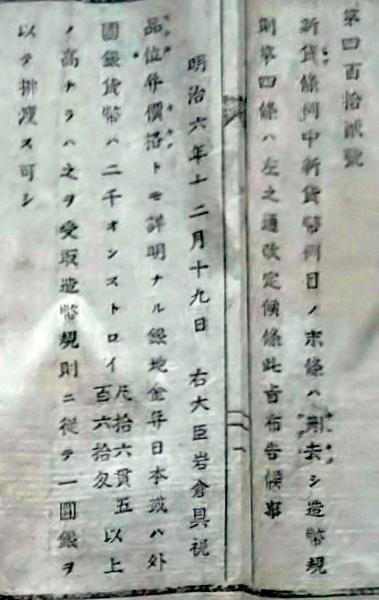 第四百拾貳號
新貨條例中新貨幣例目ノ末條ハ刪去シ造幣規
則第四條ハ左之通改定候條此旨布告候事
明治六年十二月十九日 右大臣岩倉具視
品位并價格トモ詳明ナル銀地金并日本或ハ外
國銀貨幣ハ二千オンストロイ 尺拾六貫五百六拾匁 以上
ノ高ナラハ之ヲ受取造幣規則ニ從テ一圓銀ヲ
以テ拂渡ス可シ